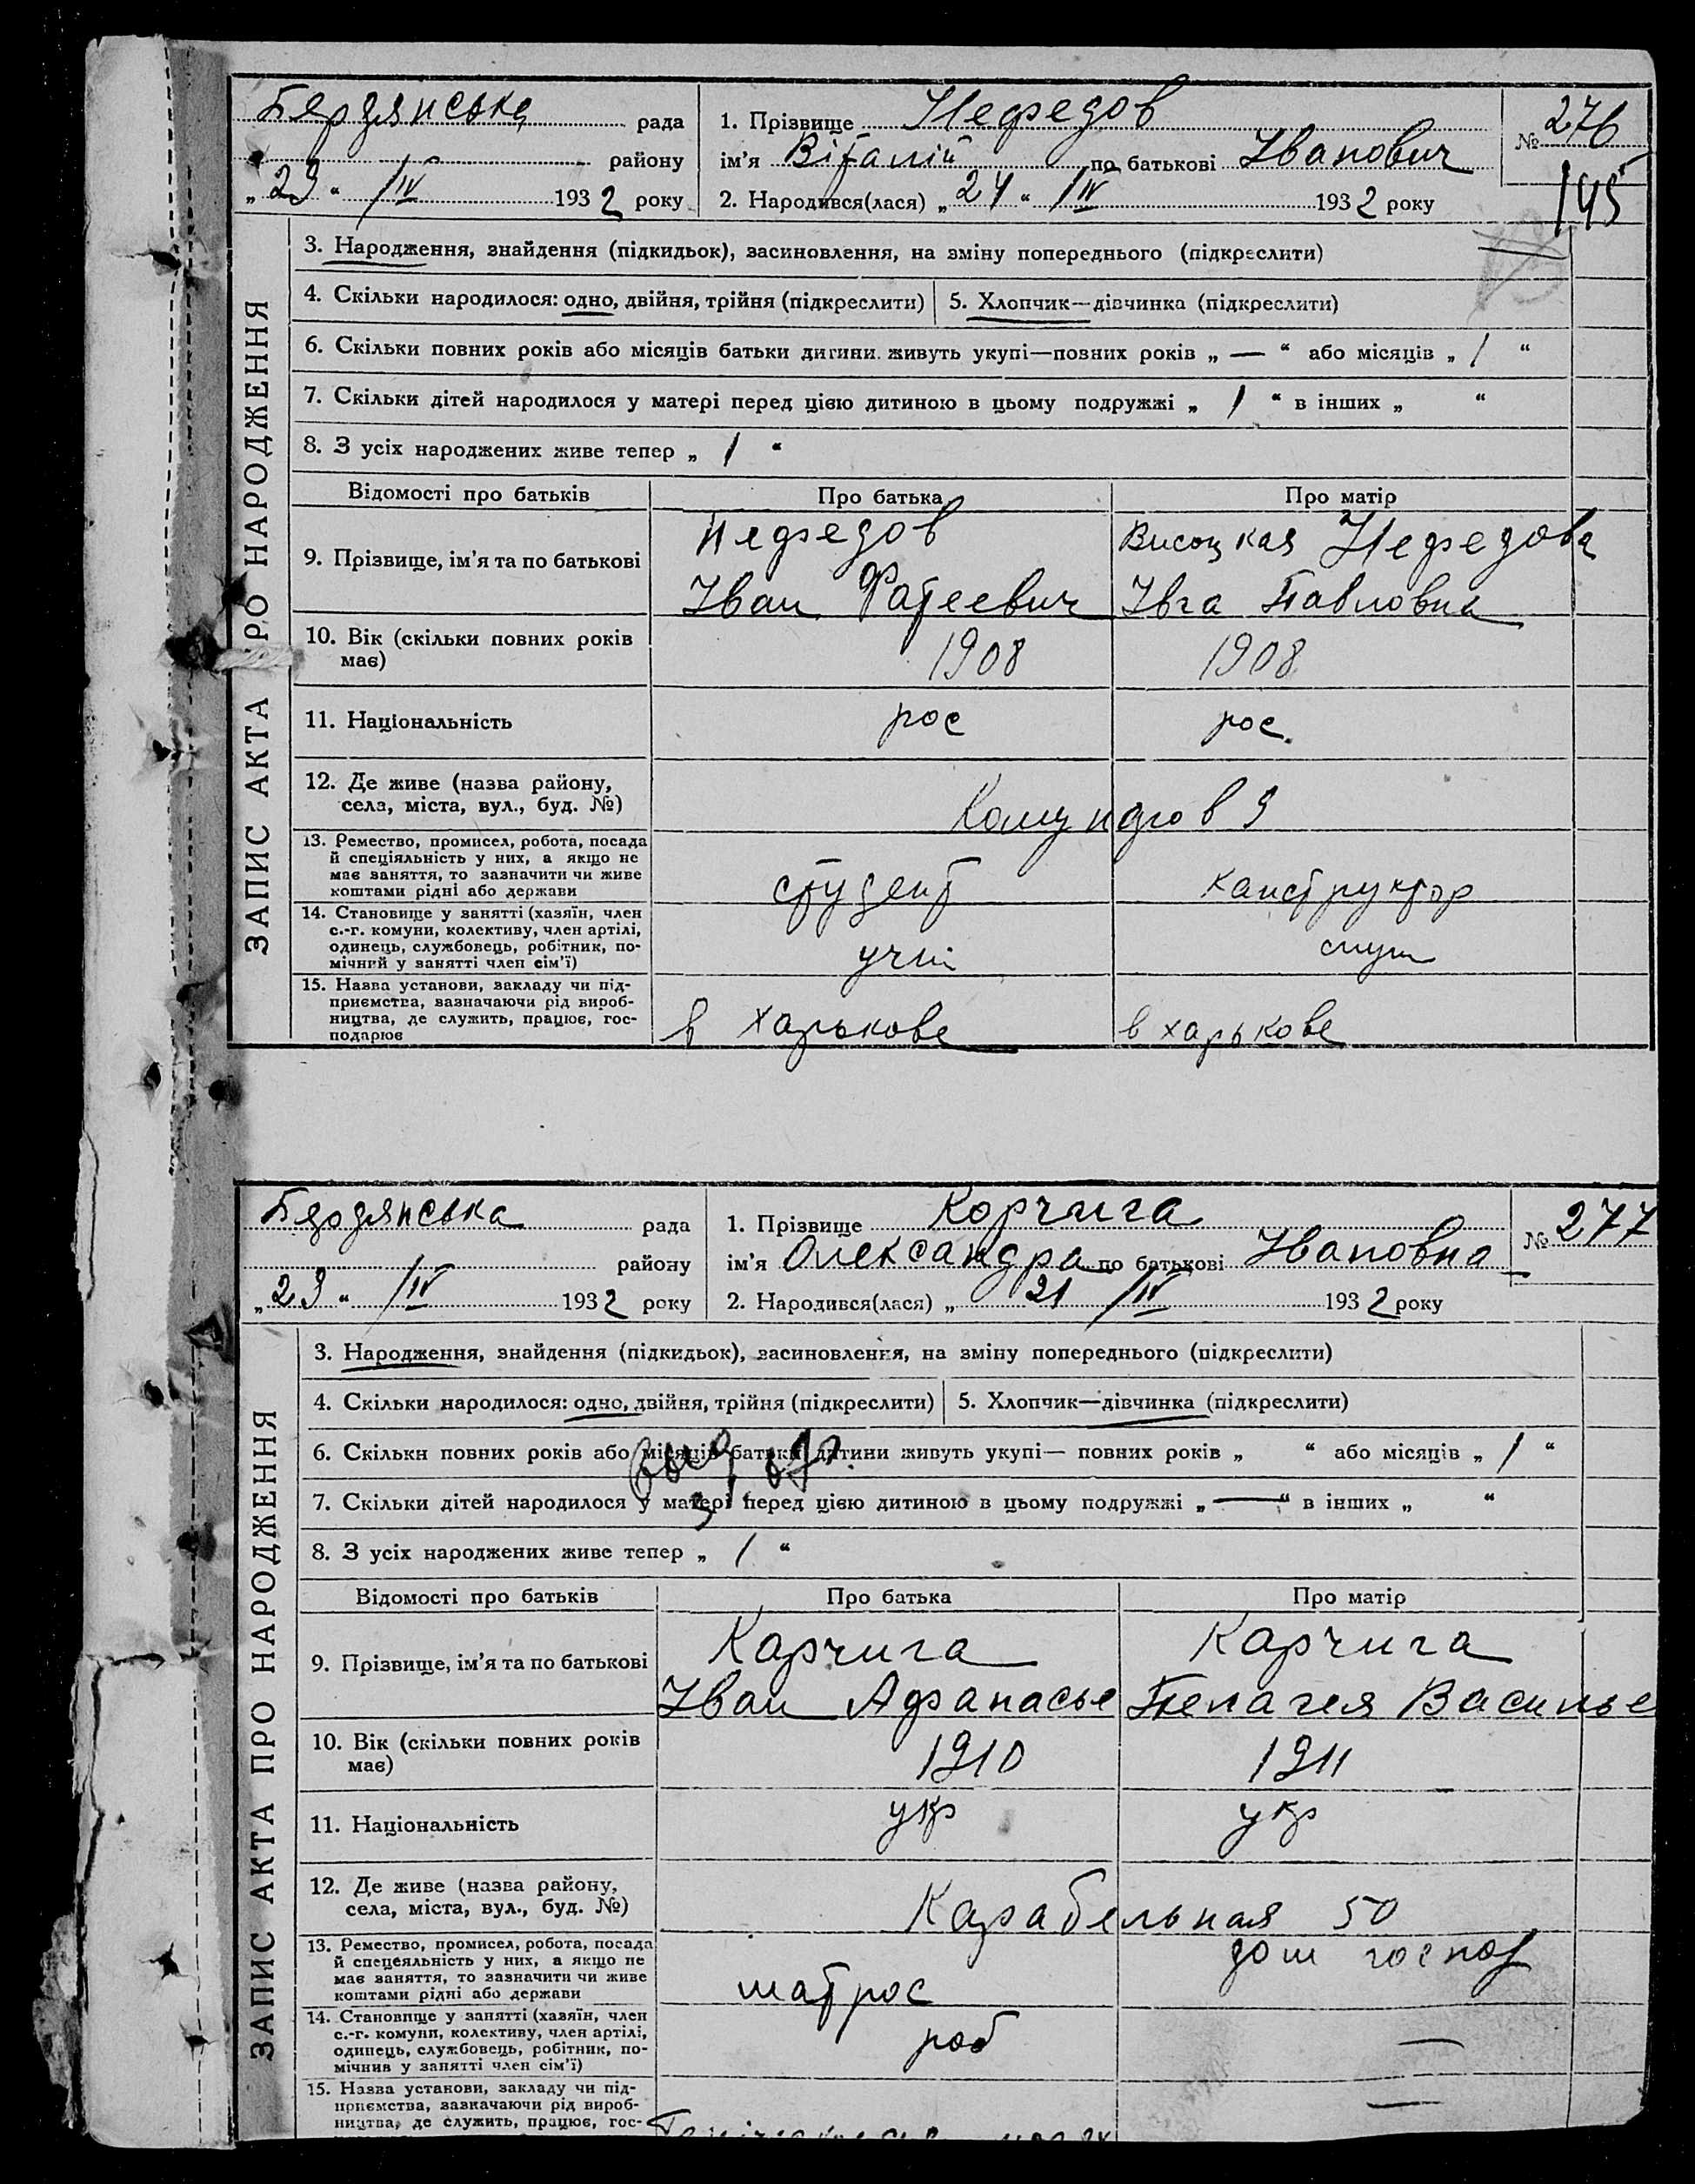 Бердянська рада
району
„23“ /IV 1932 року
1. Прізвище Нефедов
ім’я Віталій по батькові Іванович
2. Народився(лася) „24“ /IV 1932 року
№ 276
145
ЗАПИС АКТА ПРО НАРОДЖЕННЯ
3. Народження, знайдення (підкидьок), засиновлення, на зміну попереднього (підкреслити)
4. Скільки народилося: одно, двійня, трійня (підкреслити) 5. Хлопчик—дівчинка (підкреслити)
6. Скільки повних років або місяців батьки дитини живуть укупі—повних років „ — “ або місяців „ 1 “
7. Скільки дітей народилося у матері перед цією дитиною в цьому подружжі „ 1 “ в інших „ “
8. З усіх народжених живе тепер „ 1 “
Відомості про батьків Про батька Про матір
9. Прізвище, ім’я та по батькові
Нефедов
Іван Фатеевич
Висоцкая Нефедова
Івга Павловна
10. Вік (скільки повних років
має)
1908 1908
11. Національність рос рос.
12. Де живе (назва району,
села, міста, вул., буд. №)
13. Ремество, промисел, робота, посада
й спеціяльність у них, а якщо не
має заняття, то зазначити чи живе
коштами рідні або держави
студент канструктор
14. Становище у занятті (хазяїн, член
с.-г. комуни, колективу, член артілі,
одинець, службовець, робітник, по-
мічний у занятті член сім’ї)
15. Назва установи, закладу чи під-
приємства, зазначаючи рід вироб-
ництва, де служить, працює, гос-
подарює
в харькове в харькове
Бердянська рада
району
„23“ /IV 1932 року
1. Прізвище Корчига
ім’я Олександра по батькові Івановна
2. Народився(лася) „ 21 /IV 1932 року
№ 277
ЗАПИС АКТА ПРО НАРОДЖЕННЯ
3. Народження, знайдення (підкидьок), засиновлення, на зміну попереднього (підкреслити)
4. Скільки народилося: одно, двійня, трійня (підкреслити) 5. Хлопчик—дівчинка (підкреслити)
6. Скільки повних років або місяців батьки дитини живуть укупі— повних років „ “ або місяців „ 1 “
7. Скільки дітей народилося у матері перед цією дитиною в цьому подружжі „ — “ в інших „ “
8. З усіх народжених живе тепер „ 1 “
Відомості про батьків Про батька Про матір
9. Прізвище, ім’я та по батькові
Карчига
Іван Афанасье
Карчига
Пелагея Василье
10. Вік (скільки повних років
має)
1910 1911
11. Національність укр укр
12. Де живе (назва району,
села, міста, вул., буд. №)
Карабельная 50
13. Ремество, промисел, робота, посада
й спецеяльність у них, а якщо не
має заняття, то зазначити чи живе
коштами рідні або держави
матрос дом господ
14. Становище у занятті (хазяїн, член
с.-г. комуни, колективу, член артілі,
одинець, службовець, робітник, по-
мічнив у занятті член сім’ї)
роб —
15. Назва установи, закладу чи під-
приємства, зазначаючи рід вироб-
ництва, де служить, працює, гос-
—